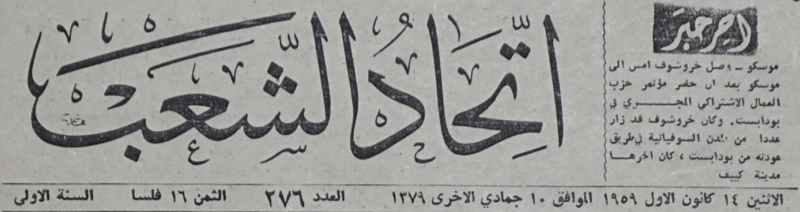 اتحاد الشعب
اخر خبر
موسكو ــ وصل خروشوف امس الى
موسكو بعد ان حضر مؤتمر حزب
العمال الاشتراكي المجري في
بودابست. وكان خروشوف قد زار
عددا من المدن السوفياتية في طريق
عودته من بودابست ، كان اخرها
مدينة كييف
الاثنين ١٤ كانون الاول ١٩٥٩ الموافق ١٠ جمادي الاخرى ١٣٧٩ العدد ٢٧٦ الثمن ١٦ فلسا السنة الاولى